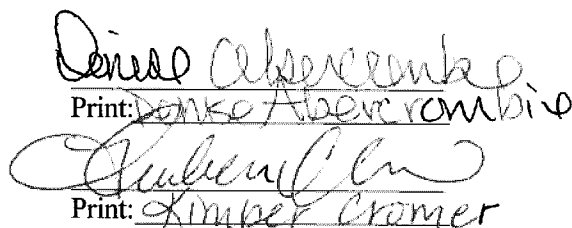 Denise Abercrombie
Print: Denise Abercrombie
Kimber Cromer
Print: Kimber Cromer